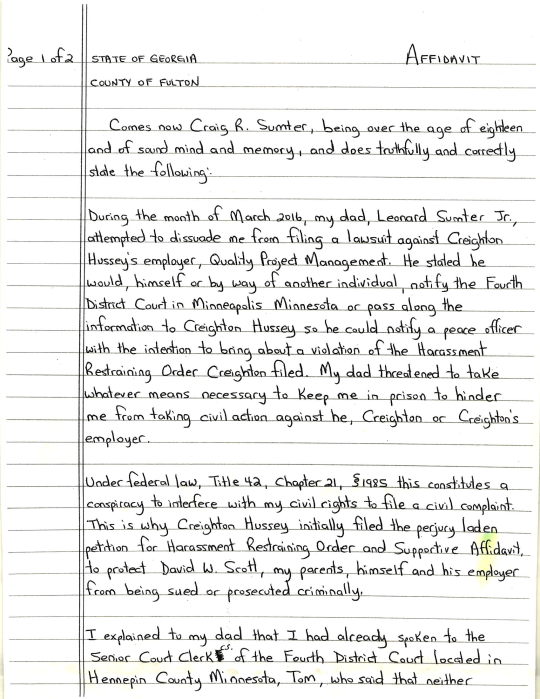 Page 1 of 2 STATE OF GEORGIA AFFIDAVIT
COUNTY OF FULTON
Comes now Craig R. Sumter, being over the age of eighteen
and of sound mind and memory, and does truthfully and correctly
state the following:
During the month of March 2016, my dad, Leonard Sumter Jr.,
attempted to dissuade me from filing a lawsuit against Creighton
Hussey's employer, Quality Project Management. He stated he
would, himself or by way of another individual, notify the Fourth
District Court in Minneapolis Minnesota or pass along the
information to Creighton Hussey so he could notify a peace officer
with the intention to bring about a violation of the Harassment
Restraining Order Creighton filed. My dad threatened to take
whatever means necessary to keep me in prison to hinder
me from taking civil action against he, Creighton or Creighton's
employer.
Under federal law, Title 42, Chapter 21, §1985 this constitutes a
conspiracy to interfere with my civil rights to file a civil complaint.
This is why Creighton Hussey initially filed the perjury laden
petition for Harassment Restraining Order and Supportive Affidavit,
to protect David W. Scott, my parents, himself and his employer
from being sued or prosecuted criminally.
I explained to my dad that I had already spoken to the
Senior Court Clerk of the Fourth District Court located in
Hennepin County Minnesota, Tom, who said that neither